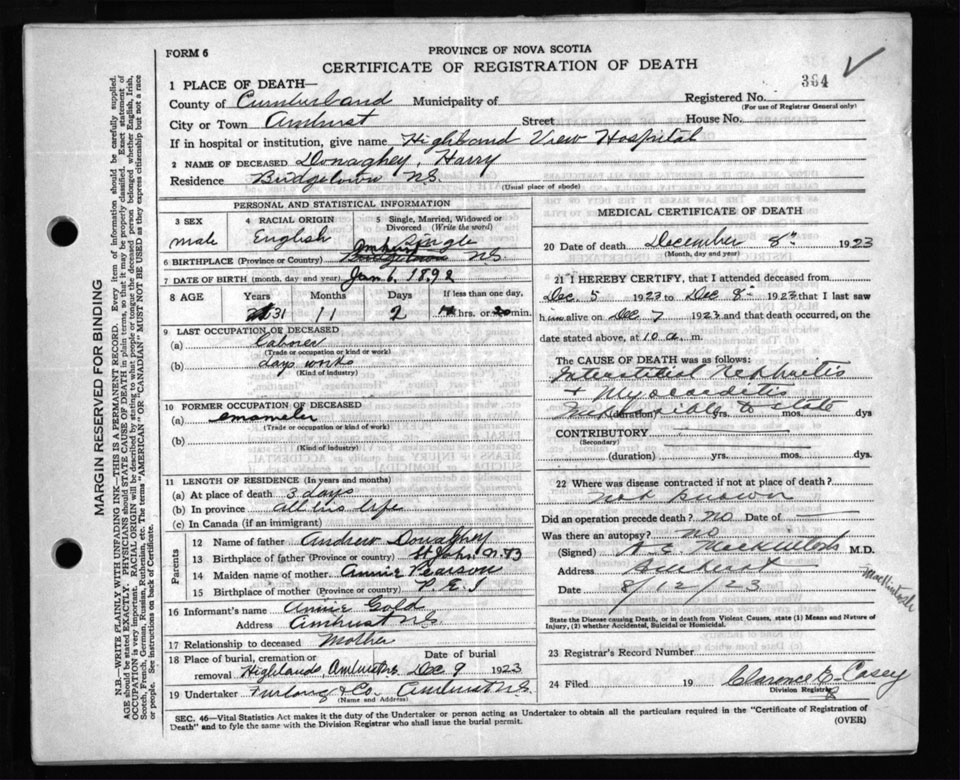 FORM 6
PROVINCE OF NOVA SCOTIA
CERTIFICATE OF REGISTRATION OF DEATH
364
1 PLACE OF DEATH—
County of Cumberland Municipality of
Registered No.
(For use of Registrar General only)
City or Town Amherst Street House No.
If in hospital or institution, give name Highland View Hospital
2 NAME OF DECEASED Donaghey, Harry
Residence Bridgetown N.S.
(Usual place of abode)
PERSONAL AND STATISTICAL INFORMATION
3 SEX
male
4 RACIAL ORIGIN
English
5 Single, Married, Widowed or Divorced (Write the word)
Single
6 BIRTHPLACE (Province or Country) Amherst Bridgetown N.S.
7 DATE OF BIRTH (month, day and year) Jan 6, 1892
8 AGE Years Months Days If less than one day,
31 11 2 hrs. or min.
9 LAST OCCUPATION OF DECEASED
(a) Laborer
(Trade or occupation or kind of work)
(b) days works
(Kind of industry)
10 FORMER OCCUPATION OF DECEASED
(a) enameler
(Trade or occupation or kind of work)
(b)
(Kind of industry)
11 LENGTH OF RESIDENCE (In years and months)
(a) At place of death 3 days
(b) In province all his life
(c) In Canada (if an immigrant)
Parents
12 Name of father Andrew Donaghey
13 Birthplace of father (Province or country) St John N.B
14 Maiden name of mother Annie Pearson
15 Birthplace of mother (Province or country) P.E.I
16 Informant's name Annie Gold
Address Amherst N.S.
17 Relationship to deceased Mother
18 Place of burial, cremation or removal Highland, Amherst N.S. Date of burial Dec 9 1923
19 Undertaker Furlong & Co. Amherst N.S.
(Name and Address)
MEDICAL CERTIFICATE OF DEATH
20 Date of death December 8th 1923
(Month, day and year)
21 I HEREBY CERTIFY, that I attended deceased from
Dec. 5 1923 to Dec 8th 1923 that I last saw
him alive on Dec 7 1923 and that death occurred, on the
date stated above, at 10 a. m.
The CAUSE OF DEATH was as follows:
Interstitial Nephritis
& Myocarditis
Impossible to state
(duration) yrs. mos. dys
CONTRIBUTORY
(Secondary)
(duration) yrs. mos. dys.
22 Where was disease contracted if not at place of death?
not known
Did an operation precede death? no Date of
Was there an autopsy? no
(Signed) MacKintosh M.D.
Address Amherst
Date 8/12/23
MacKintosh
State the Disease causing Death, or in death from Violent Causes, state (1) Means and Nature of Injury, (2) whether Accidental, Suicidal or Homicidal.
23 Registrar's Record Number
24 Filed 19 Clarence E. Casey
Division Registrar
SEC. 46—Vital Statistics Act makes it the duty of the Undertaker or person acting as Undertaker to obtain all the particulars required in the "Certificate of Registration of
Death" and to file the same with the Division Registrar who shall issue the burial permit.
(OVER)
MARGIN RESERVED FOR BINDING
N.B.—WRITE PLAINLY WITH UNFADING INK—THIS IS A PERMANENT RECORD. Every item of information should be carefully supplied.
AGE should be stated EXACTLY. PHYSICIANS should STATE CAUSE OF DEATH in plain terms, so that it may be properly classified. Exact statement of
OCCUPATION is very important. RACIAL ORIGIN will be described by stating to what people or tongue the deceased person belonged whether English, Irish,
Scotch, French, German, Russian, Ruthenian, etc. The terms "AMERICAN" OR "CANADIAN" MUST NOT BE USED as they express citizenship but not a race
or people. See instructions on back of Certificate.